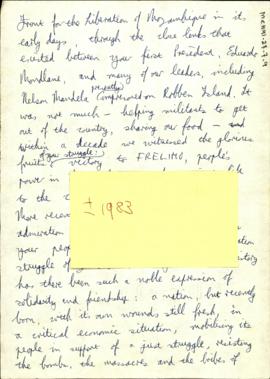 Front for the Liberation of Mozambique in its
early days, through the close links that
existed between your first President, Eduardo
Mondlane, and many of our leaders, including
Nelson Mandela presently imprisoned on Robben Island. It
was not much — helping militants to get
out of the country, sharing our food — and
within a decade we witnessed the glorious
fruits of your struggle: victory to FRELIMO, people's
power in
to the
More recen
admiration
your peop
struggle of
has there been such a noble expression of
solidarity and friendship: a nation, but recently
born, with its own wounds still fresh, in
a critical economic situation, mobilising its
people in support of a just struggle, resisting
the bombs, the massacres and the bribes of
± 1983